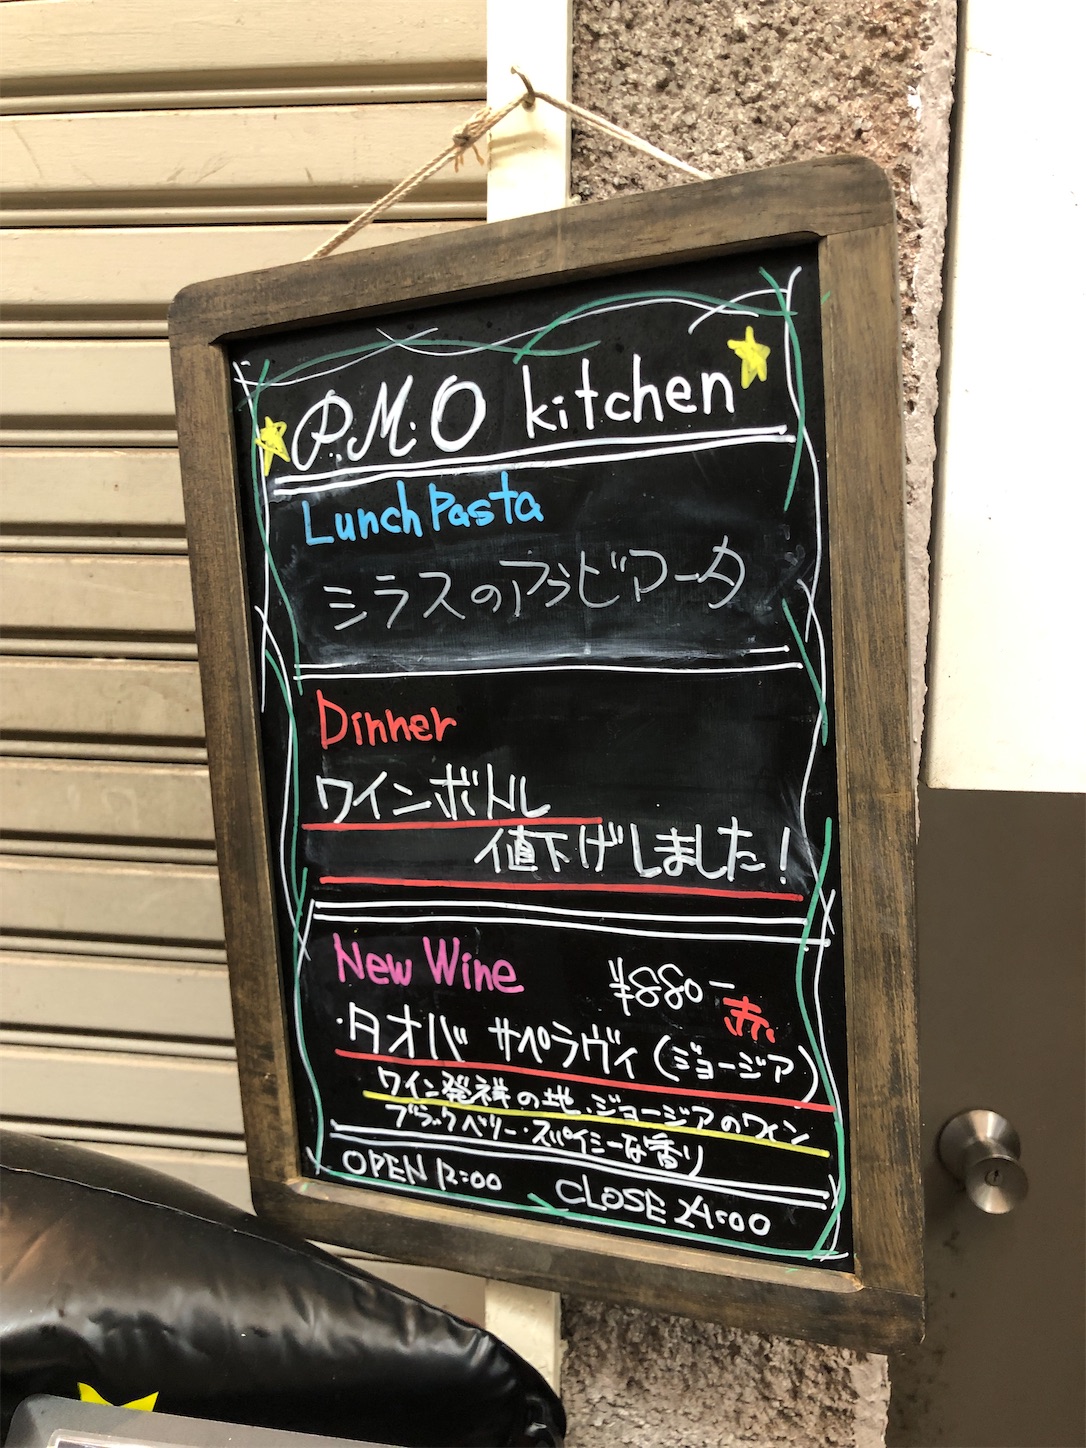 P.M.O kitchen
Lunch Pasta
シラスのアラビアータ
Dinner
ワインボトル
値下げしました!
New Wine ¥880-
赤
・タオバ サペラヴィ(ジョージア)
ワイン発祥の地・ジョージアのワイン
ブラックベリー・スパイシーな香り
OPEN 12:00 CLOSE 24:00